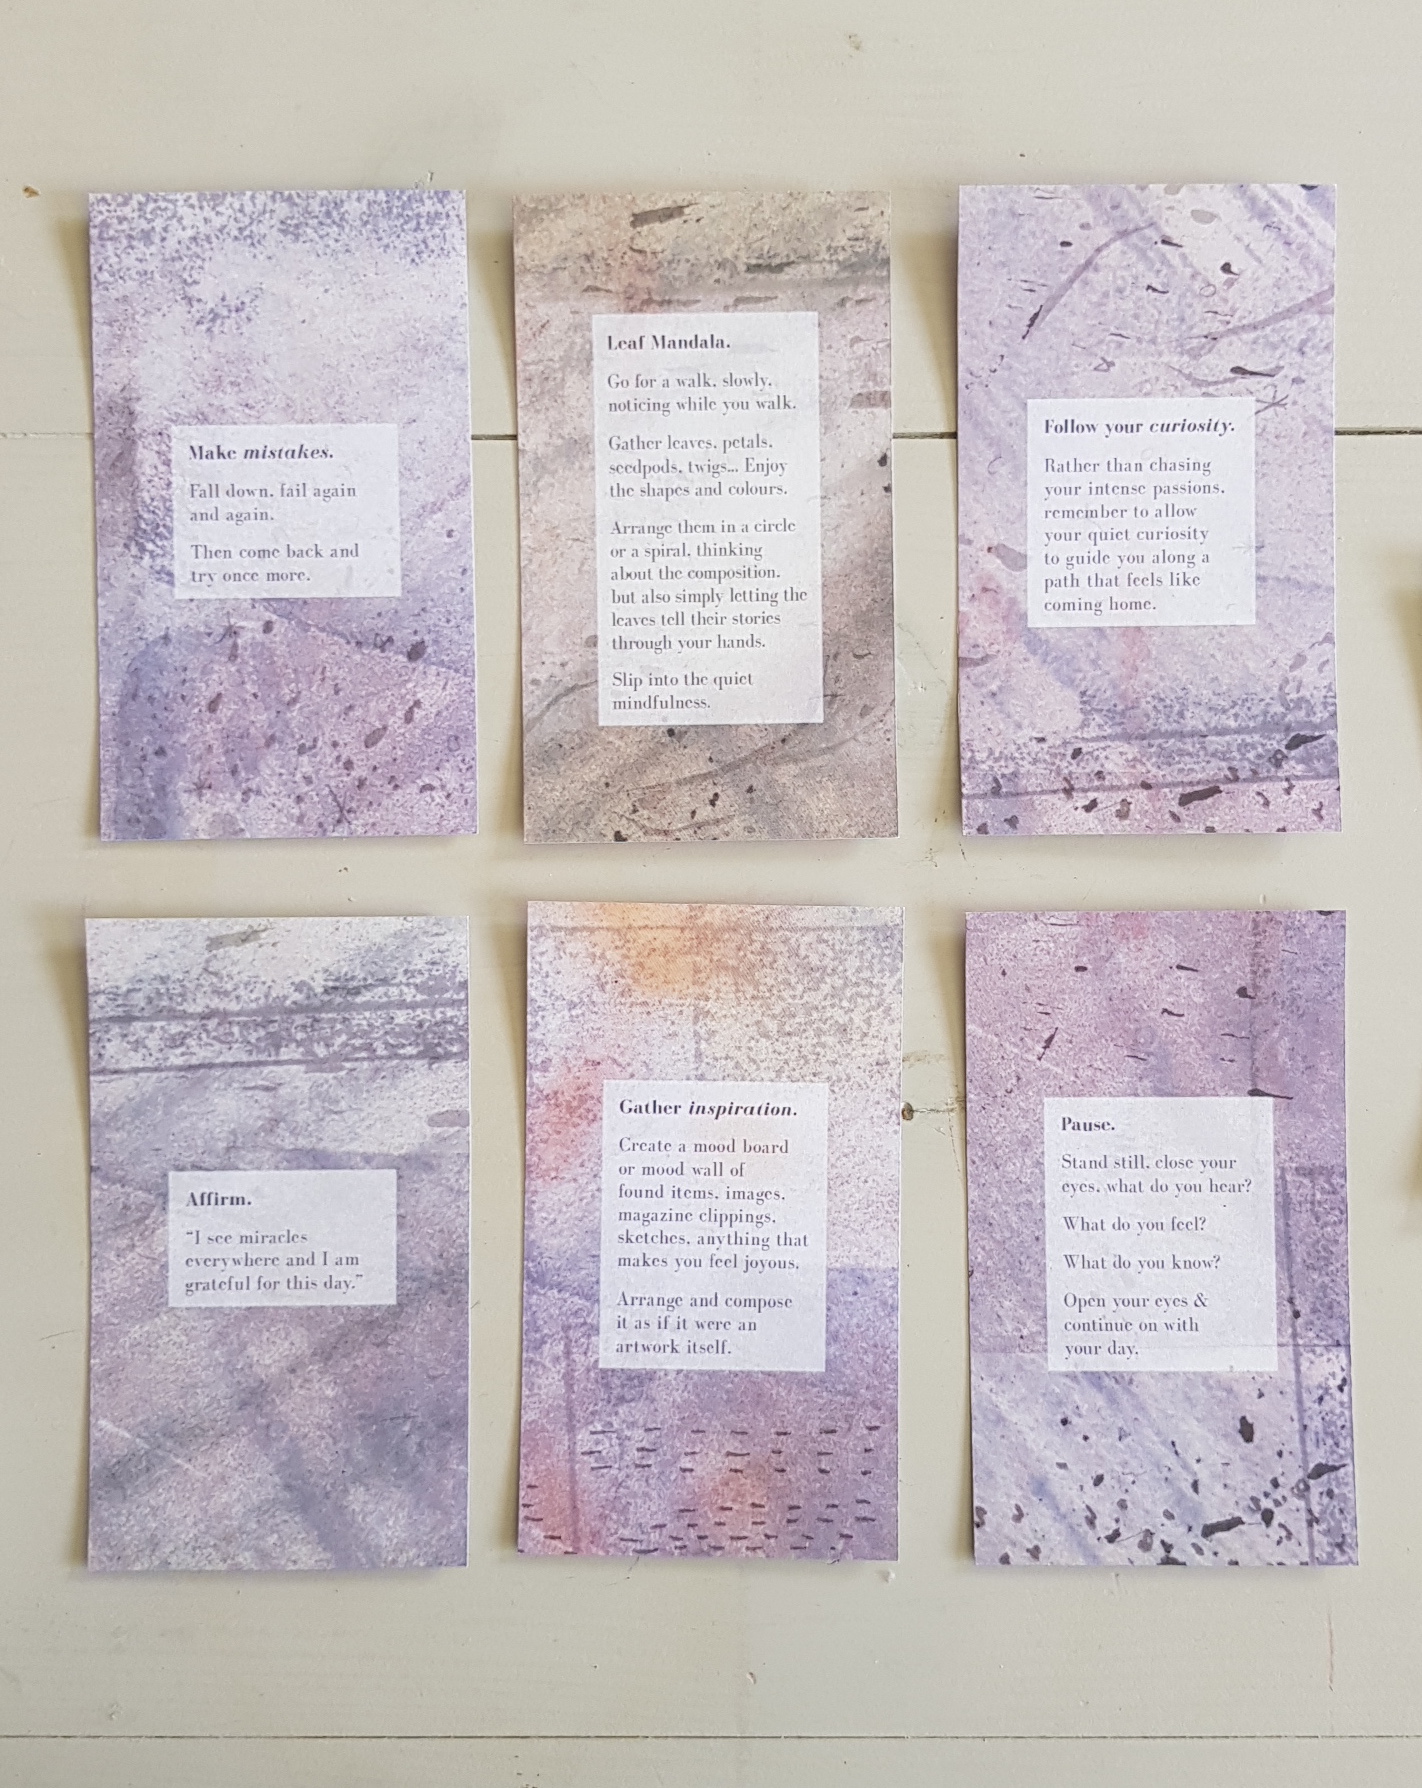 Make mistakes.
Fall down, fail again
and again.
Then come back and
try once more.
Leaf Mandala.
Go for a walk, slowly,
noticing while you walk.
Gather leaves, petals,
seedpods, twigs... Enjoy
the shapes and colours.
Arrange them in a circle
or a spiral, thinking
about the composition,
but also simply letting the
leaves tell their stories
through your hands.
Slip into the quiet
mindfulness.
Follow your curiosity.
Rather than chasing
your intense passions,
remember to allow
your quiet curiosity
to guide you along a
path that feels like
coming home.
Affirm.
“I see miracles
everywhere and I am
grateful for this day.”
Gather inspiration.
Create a mood board
or mood wall of
found items, images,
magazine clippings,
sketches, anything that
makes you feel joyous.
Arrange and compose
it as if it were an
artwork itself.
Pause.
Stand still, close your
eyes, what do you hear?
What do you feel?
What do you know?
Open your eyes &
continue on with
your day.